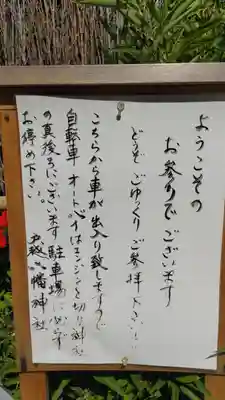 ようこその
お参りでございます
どうぞ ごゆっくり ご参拝 下さいませ
こちらから車が出入り致しますので
自転車 オートバイはエンジンを切り 神社
の真後ろにございます 駐車場に必ず
お停め下さい。
戸越八幡神社